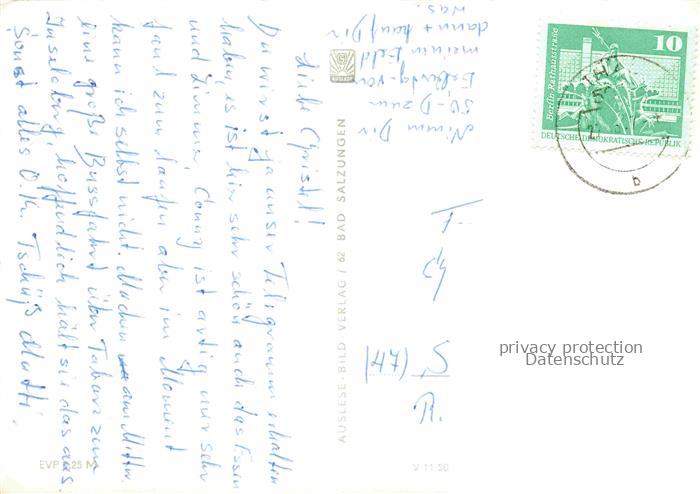 Liebe Christel!
Du wirst ja unser Telegramm erhalten
haben, es ist hier sehr schön auch das Essen
und Zimmer, Conny ist artig nur sehr
zum laufen aber im Moment
kann ich selbst nicht. Machen am Mittw.
eine große Busfahrt über Tabarz zum
Inselsberg, hoffendlich hält sie das aus.
Sonst alles O.K. Tschüß Mutti.
Nimm Dir
50,-D zum
von
meinem Geld
dann + kauf Dir
was.
AUSLESE-BILD VERLAG / 62 BAD SALZUNGEN
EVP 0,25 M
V 11 50
10
Berlin, Rathausstraße
DEUTSCHE DEMOKRATISCHE REPUBLIK
b
privacy protection
Datenschutz